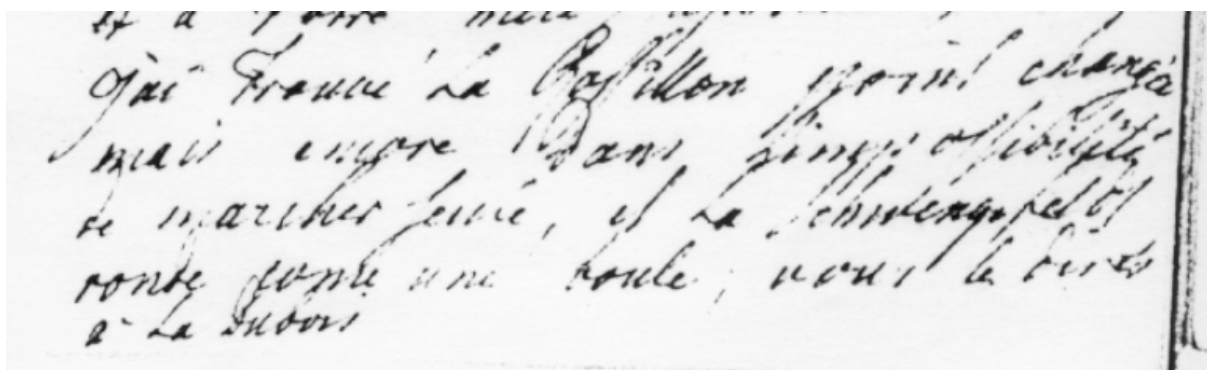 et a
jai trouvé La Castillon point changée
mais encore Dans limpossibilité
de marcher seule, et La
ronde come une boule, vous le dirés
a La Dubois